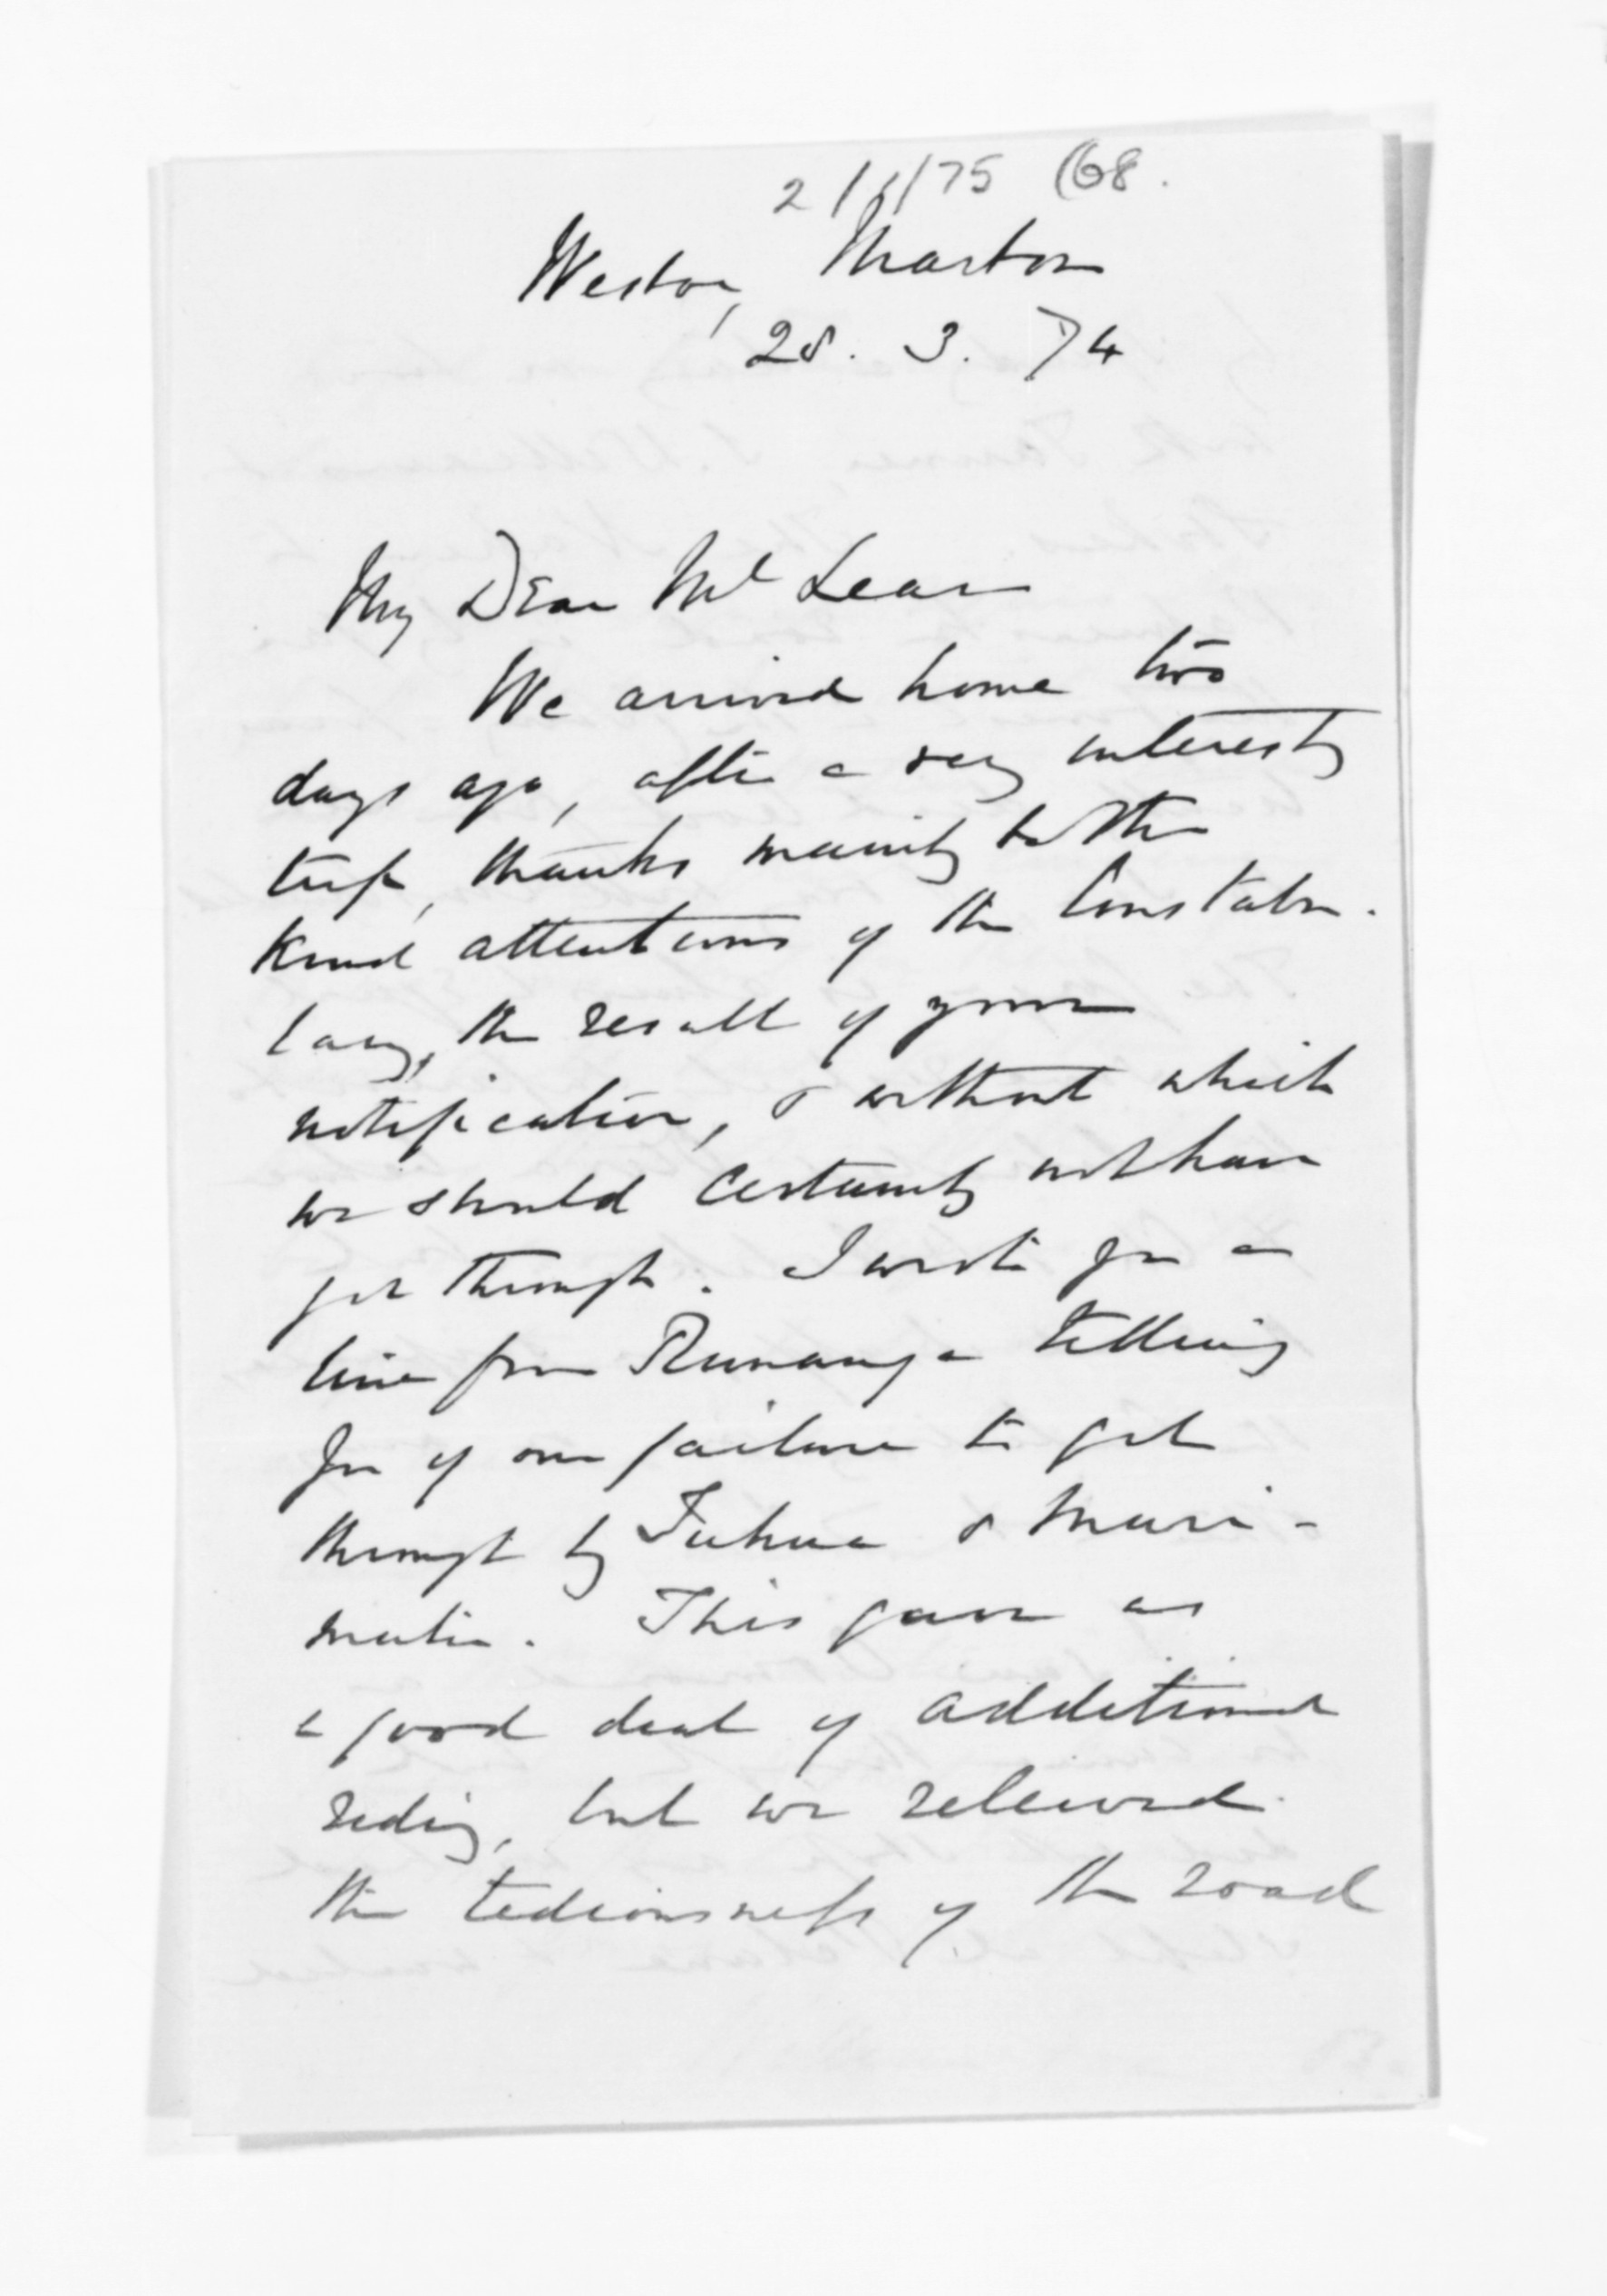 2/1/75 (68.
Weston, Marton
28. 3. 74
My Dear McLean
We arrived home two
days ago, after a very interestg
trip, thanks mainly to the
kind attentions of the Constabu-
lary, the result of your
notification, & without which
we should certainly not have
got through. I wrote you a
line from Runanga telling
you of our failure to get
through by Tuhua & Muri-
motu. This gave us
a good deal of additional
riding, but we relieved
the tediousness of the road